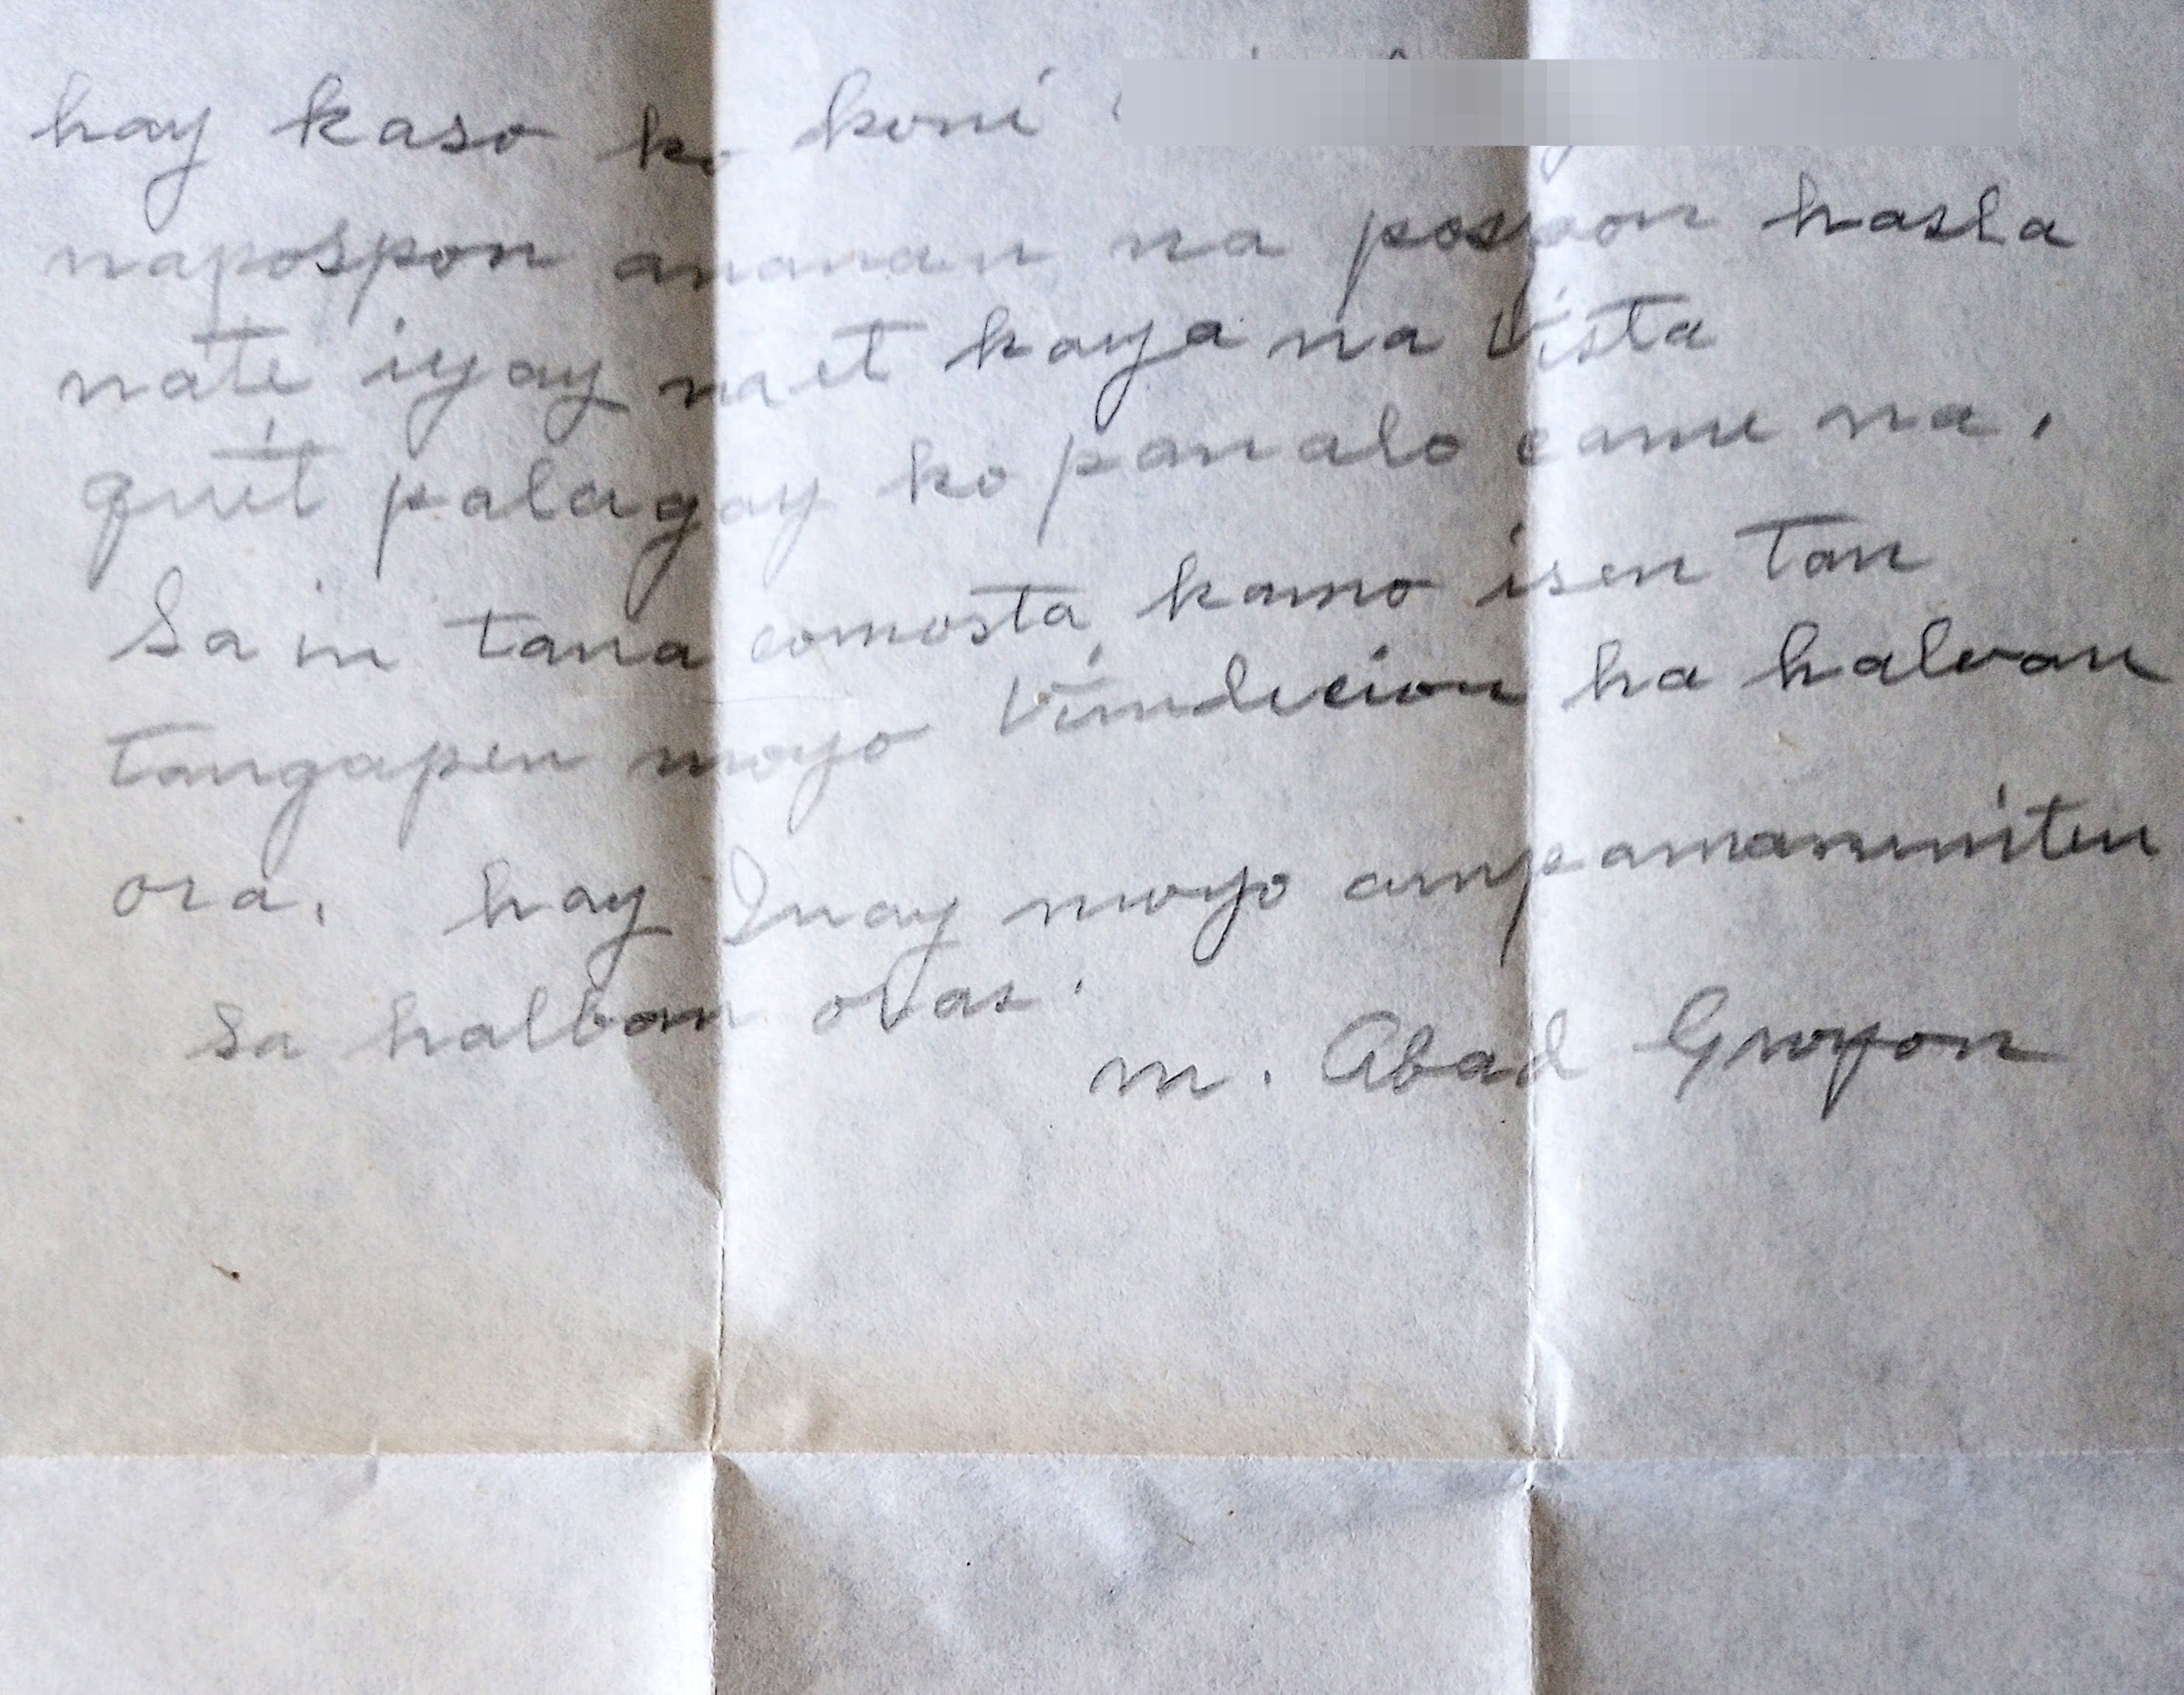 hay kaso ko koni
napospon ananan na pospon hasta
nate iyay naet kaya na Vista
quit palagay ko panalo came na.
Sain tana comosta kamo isen tan
tangapen moyo Vindicion ha halvan
ora. hay Inay moyo ampamanuniten
sa halban oras.
m. Abad Groyon